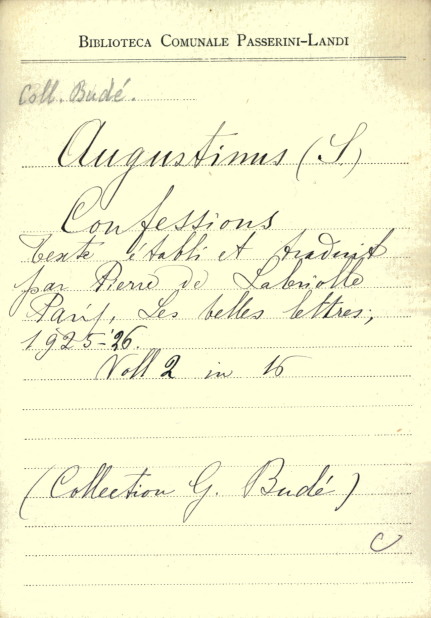 BIBLIOTECA COMUNALE PASSERINI-LANDI
Coll. Budé.
Augustinus (S.)
Confessions
texte établi et traduit
par Pierre de Labriolle
Paris, Les belles lettres,
1925-'26.
Voll 2 in 16
(Collection G. Budé)
C